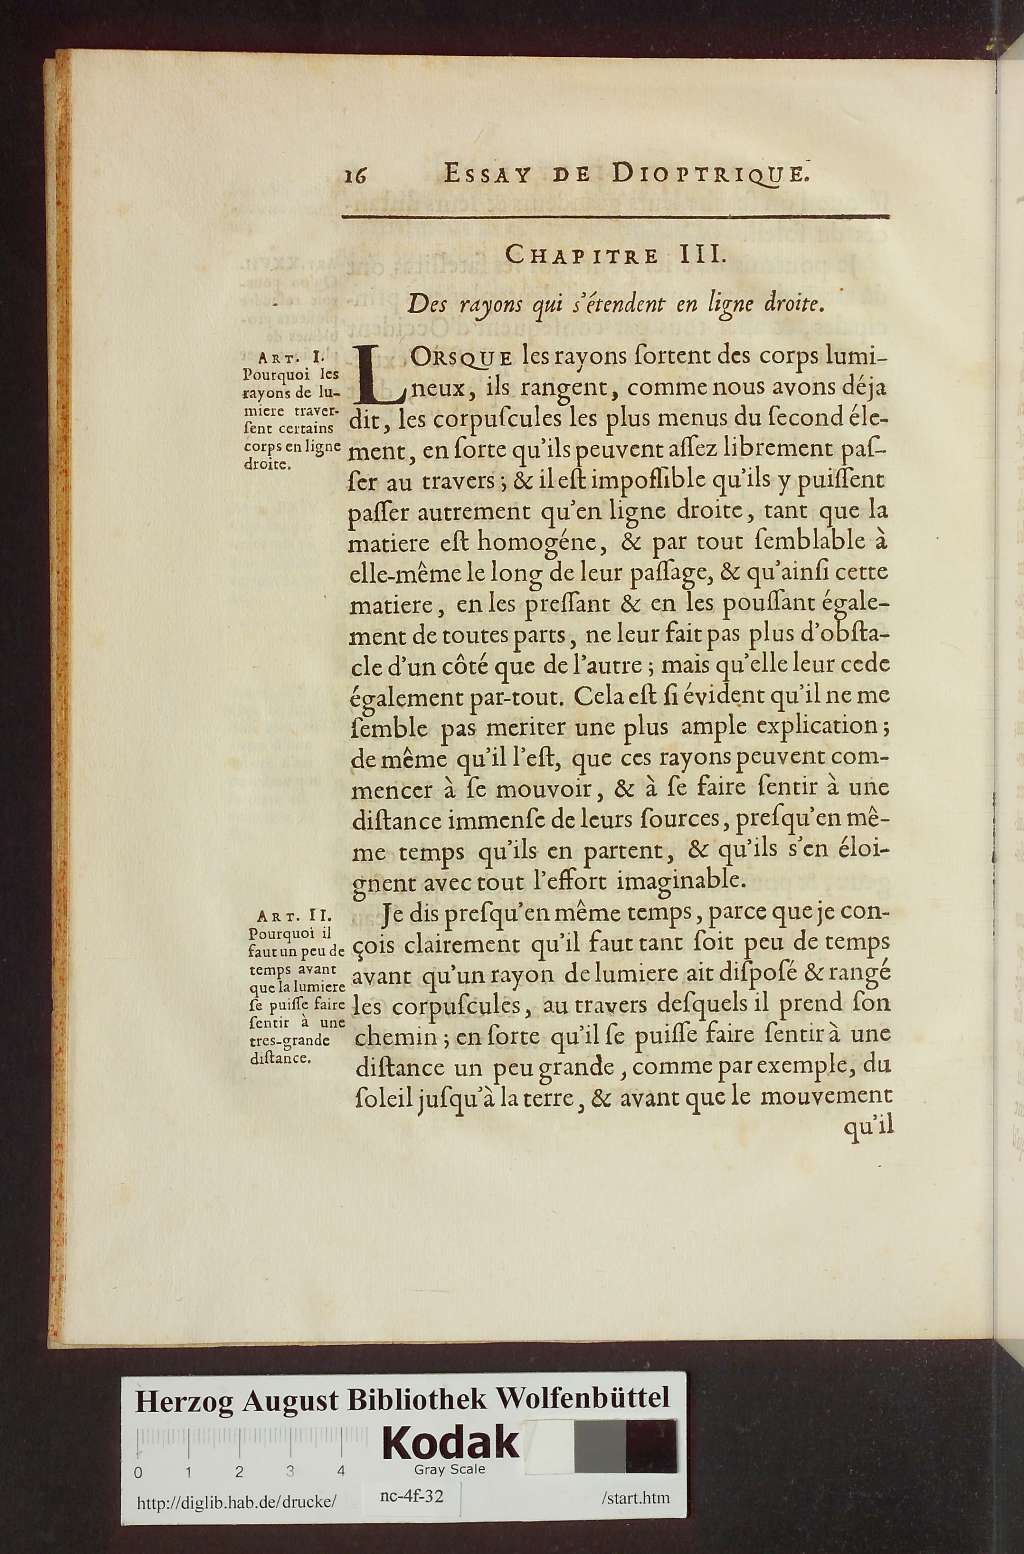 16 ESSAY DE DIOPTRIQUE.
CHAPITRE III.
Des rayons qui s'étendent en ligne droite.
ART. I.
Pourquoi les
rayons de lu-
miere traver-
ſent certains
corps en ligne
droite.
LORSQUE les rayons ſortent des corps lumi-
neux, ils rangent, comme nous avons déja
dit, les corpuſcules les plus menus du ſecond éle-
ment, en ſorte qu'ils peuvent aſſez librement paſ-
ſer au travers; & il eſt impoſſible qu'ils y puiſſent
paſſer autrement qu'en ligne droite, tant que la
matiere eſt homogéne, & par tout ſemblable à
elle-même le long de leur paſſage, & qu'ainſi cette
matiere, en les preſſant & en les pouſſant égale-
ment de toutes parts, ne leur fait pas plus d'obſta-
cle d'un côté que de l'autre; mais qu'elle leur cede
également par-tout. Cela eſt ſi évident qu'il ne me
ſemble pas meriter une plus ample explication;
de même qu'il l'eſt, que ces rayons peuvent com-
mencer à ſe mouvoir, & à ſe faire ſentir à une
diſtance immenſe de leurs ſources, preſqu'en mê-
me temps qu'ils en partent, & qu'ils s'en éloi-
gnent avec tout l'effort imaginable.
ART. II.
Pourquoi il
faut un peu de
temps avant
que la lumiere
ſe puiſſe faire
ſentir à une
tres-grande
diſtance.
Je dis preſqu'en même temps, parce que je con-
çois clairement qu'il faut tant ſoit peu de temps
avant qu'un rayon de lumiere ait diſpoſé & rangé
les corpuſcules, au travers deſquels il prend ſon
chemin; en ſorte qu'il ſe puiſſe faire ſentir à une
diſtance un peu grande, comme par exemple, du
ſoleil juſqu'à la terre, & avant que le mouvement
qu'il
Herzog August Bibliothek Wolfenbüttel
Kodak
Gray Scale
0 1 2 3 4
http://diglib.hab.de/drucke/ nc-4f-32 /start.htm